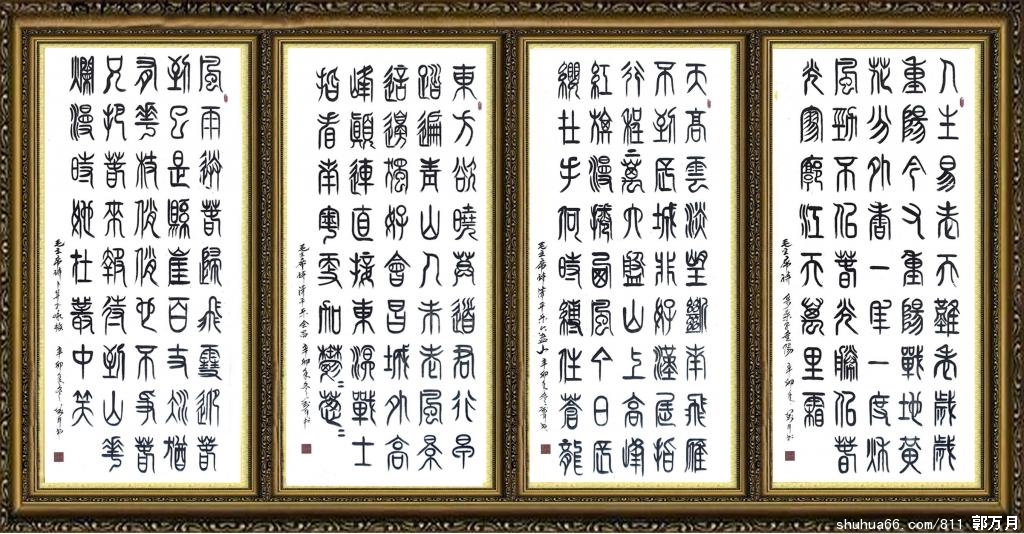 人生易老天難老歲歲
重陽今又重陽戰地黄
花分外香一年一度秋
風勁不似春光勝似春
光寥廓江天萬里霜
毛主席詞 采桑子重陽 辛卯年冬
天高雲淡望斷南飛雁
不到長城非好漢屈指
行程二萬六盤山上高峰
紅旗漫捲西風今日長
纓在手何時縛住蒼龍
毛主席詞 清平乐六盘山 辛卯年冬
東方欲曉莫道君行早
踏遍青山人未老風景
這邊獨好會昌城外高
峰顛連直接東溟戰士
指看南粤更加鬱〻葱〻
毛主席詞 清平乐会昌 辛卯年冬
風雨送春歸飛雪迎春
到已是縣崖百丈冰猶
有花枝俏俏也不爭春
只把春來報待到山花
爛漫時她在叢中笑
毛主席詞 卜算子咏梅 辛卯年冬
shuhua66.com/811 郭万月